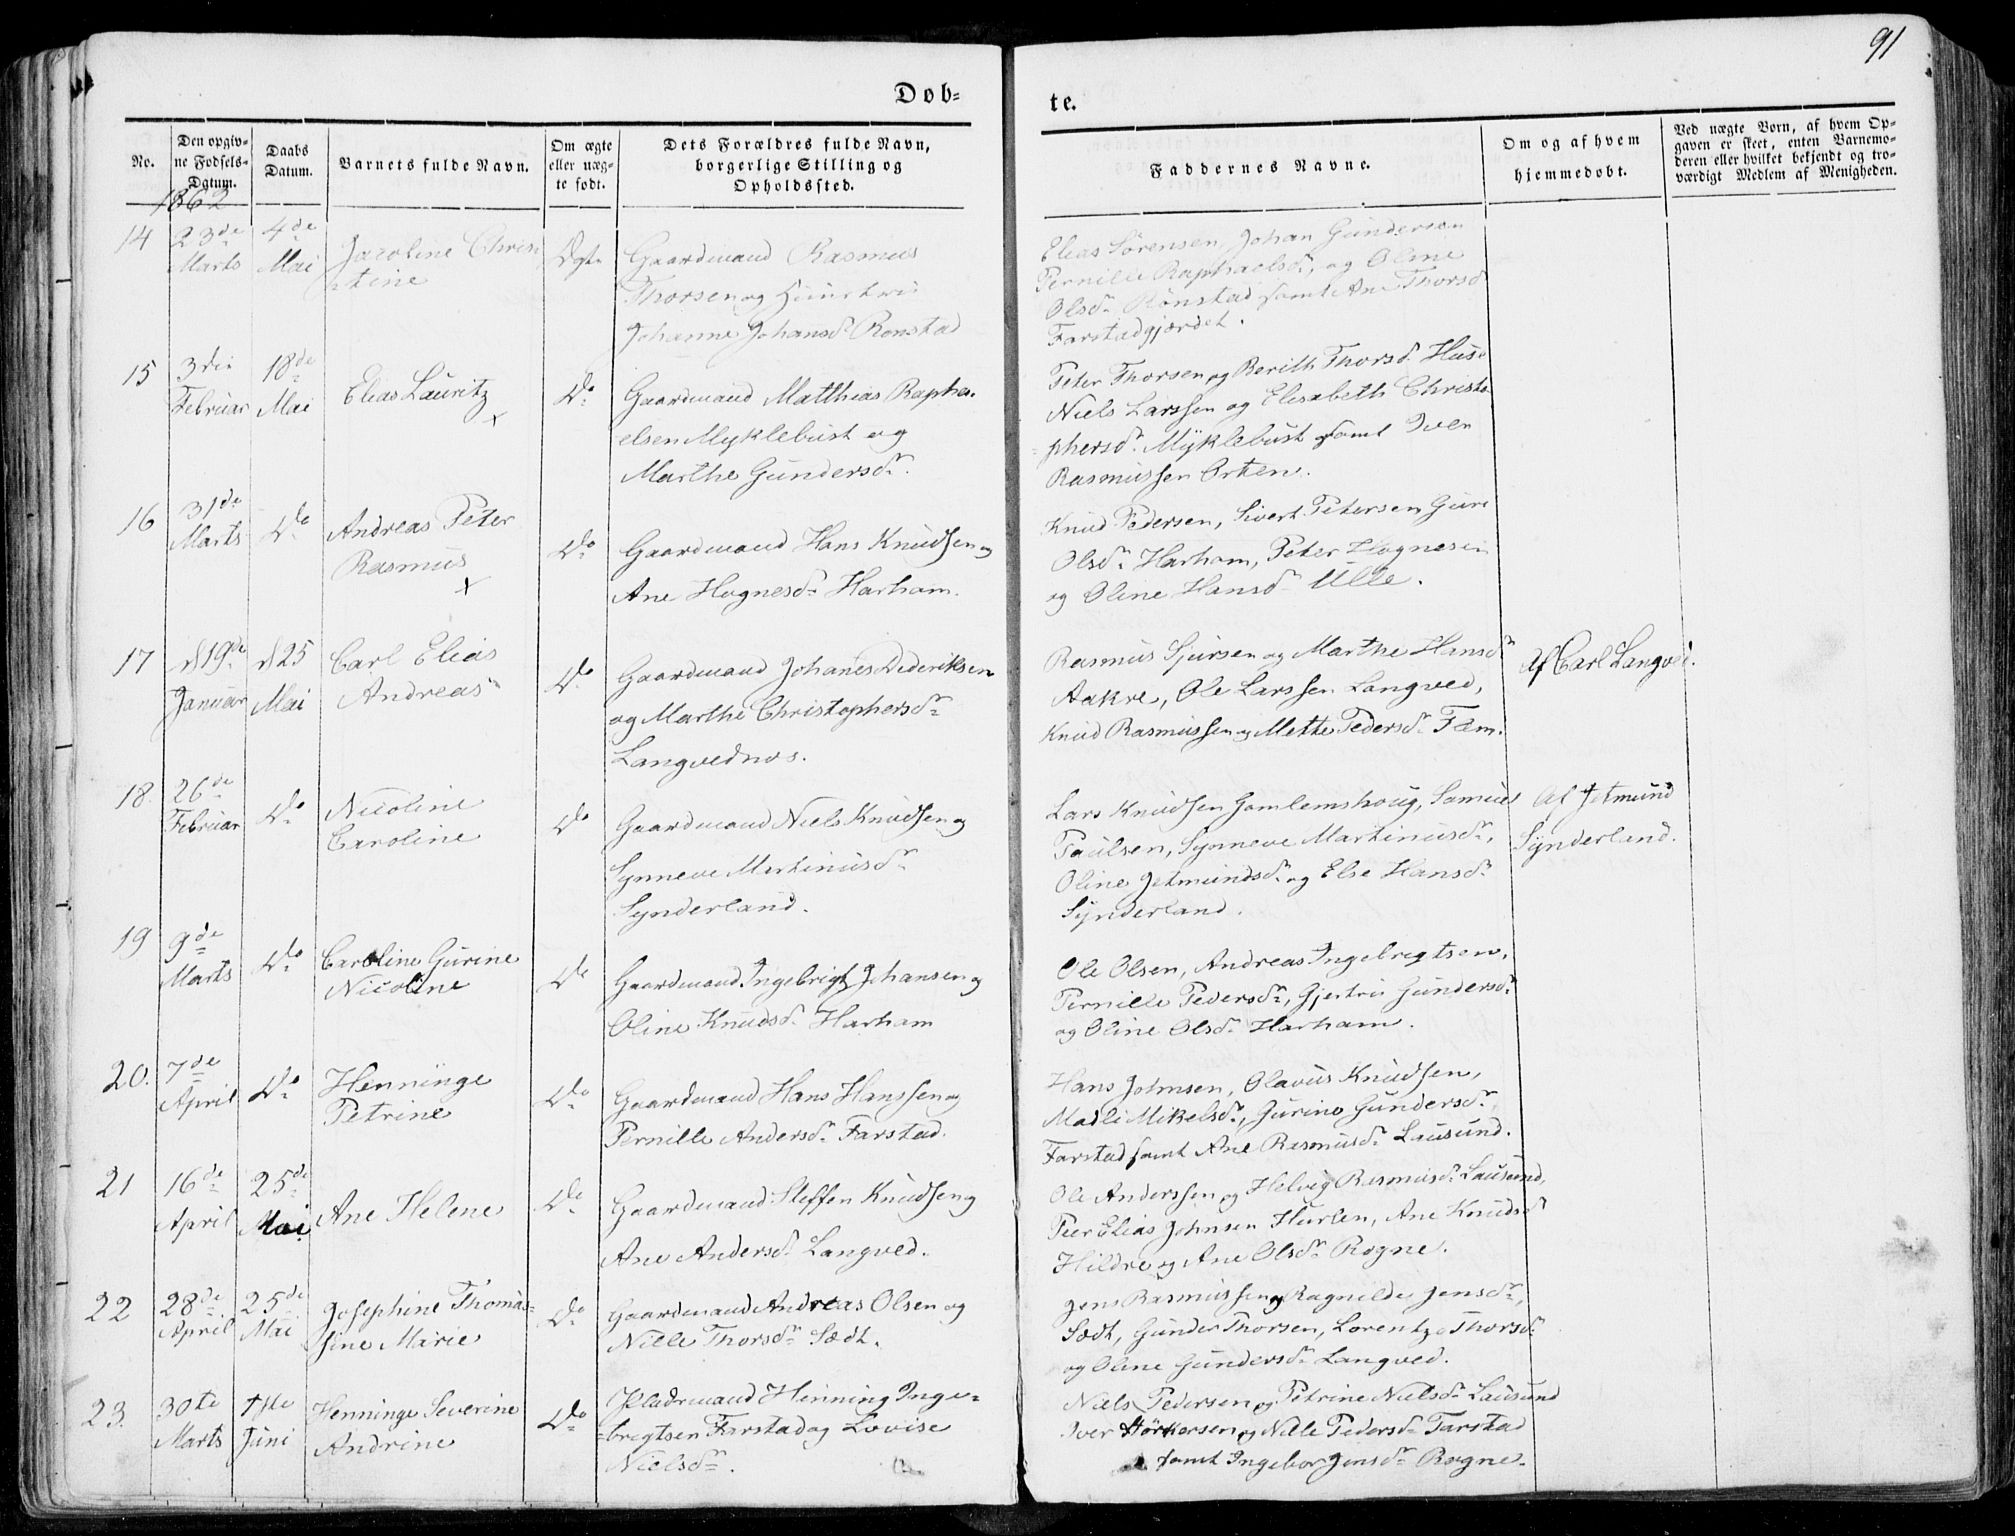 91
Døb-
te.
No.
Den opgiv-
ne Fødsels-
Datum.
Daabs
Datum.
Barnets fulde Navn.
Om ægte
eller uæg-
te født.
Dets Forældres fulde Navn,
borgerlige Stilling og
Opholdssted.
Faddernes Navne.
Om og af hvem
hjemmedøbt.
Ved uægte Børn, af hvem Op-
gaven er skeet, enten Barnemo-
deren eller hvilket bekjendt og tro-
værdigt Medlem af Menigheden.
1862
14
23de
Marts
4de
Mai
Jacoline Chris
tine
Ægte
Gaardmand Rasmus
Thorsen og Huustru
Johanne Johansdr Rønstad
Elias Sørensen, Johan Gundersen
Pernille Raphaelsdr, og Oline
Olsdr Rønstad samt Ane Thorsd
Farstadgjærdet.
15
3die
Februar
18de
Mai
Elias Lauritz
x
Do
Gaardmand Matthias Rapha-
elsen Myklebust og
Marthe Gundersdr.
Peter Thorsen og Berith Thorsd. Huse
Niels Larssen og Elisabeth Christo-
phersdr. Myklebust samt Iver
Rasmussen Orten.
16
31de
Marts
Do
Andreas Peter
Rasmus
x
Do
Gaardmand Hans Knudsen og
Ane Hognesdr Harham.
Knud Pedersen, Sivert Petersen Guri
Olsdr Harham, Peter Hognesen
og Oline Hansd Ulle.
17
d 19de
Januar
d 25
Mai
Carl Elias
Andreas
Do
Gaardmand Johanes Dideriksen
og Marthe Christophersdr
Langvednos.
Rasmus Sjursen og Marthe Hansdr
Aakre, Ole Larssen Langved,
Knud Rasmussen og Mette Pedersdr Fæm.
Af Carl Langved.
18.
26de
Februar
Do
Nicoline
Caroline
Do
Gaardmand Niels Knudsen og
Synneve Martinusdr
Synderland.
Lars Knudsen Gamlemshoug, Samuel
Paulsen, Synneve Martinusdr,
Oline Jetmundsdr og Else Hansdr
Synderland.
Af Jetmund
Synderland.
19
9de
Marts
Do
Caroline Gurine
Nicoline
Do
Gaardmand Ingebrigt Johansen og
Oline Knudsdr Harham
Ole Olsen, Andreas Ingebrigtsen,
Pernille Pedersdr, Gjertrü Gundersdr
og Oline Olsdr Harham.
20.
7de
April
Do
Henninge
Petrine
Do
Gaardmand Hans Hanssen og
Pernille Andersdr Farstad.
Hans Johnsen, Olavus Knudsen,
Madli Mikelsdr, Gurine Gundersdr
Farstad samt Ane Rasmusdr Lausund.
21
16de
April
25de
Mai
Ane Helene
Do
Gaardmand Steffen Knudsen og
Ane Andersdr Langved.
Ole Anderssen og Helvig Rasmusdr Lausund,
Peer Elias Johnsen Hurlen, Ane Knudsd
Hildre og Ane Olsdr Rogne.
22
28de
April
25de
Mai
Josephine Thomas-
sine Marie
Do
Gaardmand Andreas Olsen og
Nille Thorsdr Sædt.
Jens Rasmussen og Ragnilde Jensdr,
Sædt, Gunder Thorsen, Lorentze Thorsdr
og Oline Gundersdr Langved.
23.
30te
Marts
1ste
Juni
Henninge Severine
Andrine
Do
Pladsmand Henning Inge-
brigtsen Farstad og Lovise
Nielsdr.
Niels Pedersen og Petrine Nielsdr Lausund
Iver Størkersen og Nille Pedersdr Farstad
samt Ingebor Jensdr Rogne.